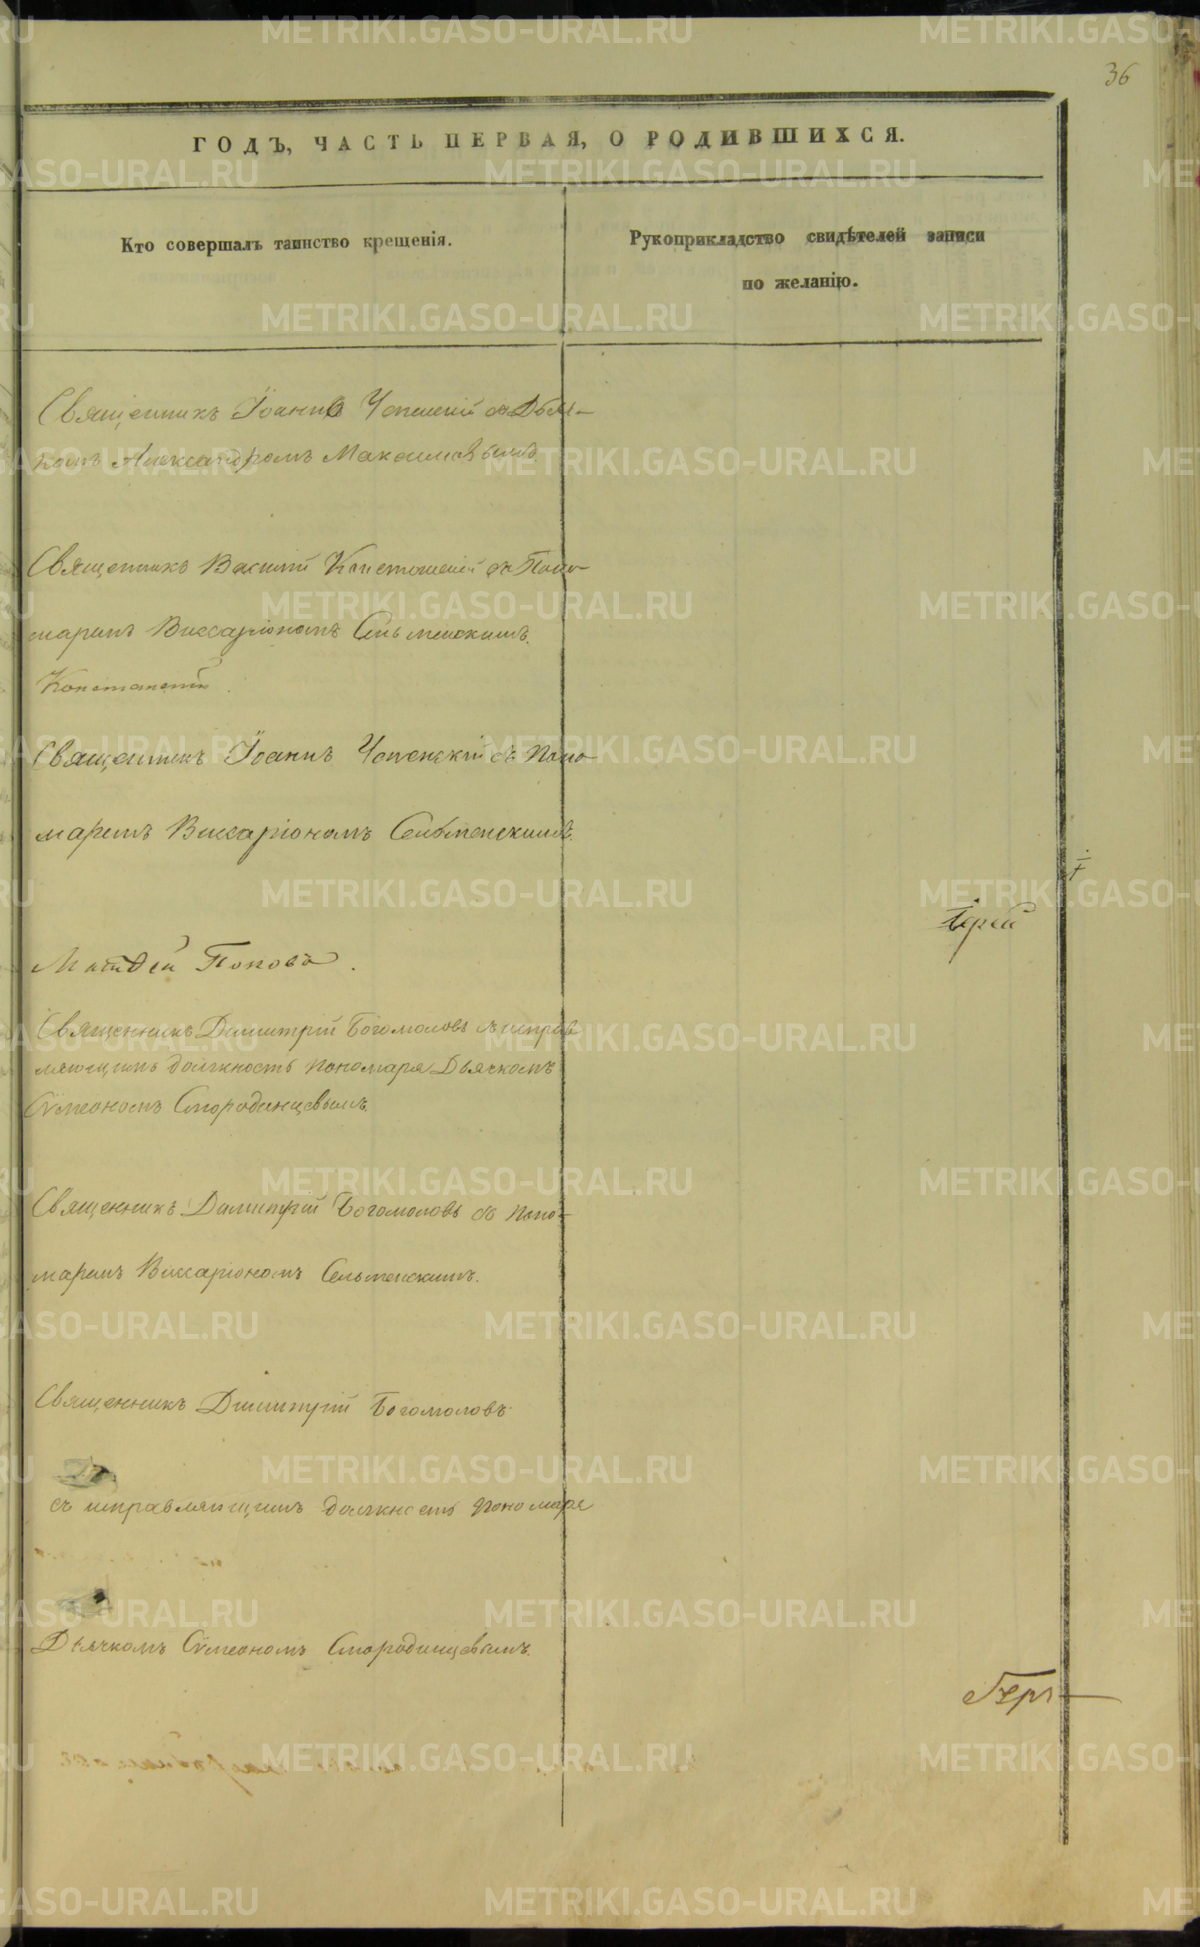 36
ГОДЪ, ЧАСТЬ ПЕРВАЯ, О РОДИВШИХСЯ.
Кто совершалъ таинство крещенія.
Рукоприкладство свидѣтелей записи
по желанію.
Священникъ Іоаннъ съ Дья-
Александромъ
Священникъ Василій съ Поно-
маремъ Виссаріономъ Сельменскимъ.
Священникъ Іоаннъ Чопенскій съ Поно-
маремъ Виссаріономъ Сельменскимъ.
Іерей
Попова.
Священникъ Димитрій Богомоловъ съ исправ
ляющимъ должность пономаря Дьячкомъ
Сѵмеономъ Смородинцевымъ.
Священникъ Димитрій Богомоловъ съ Поно-
маремъ Виссаріономъ Сельменскимъ.
Священникъ Димитрій Богомоловъ
съ исправляющимъ должность пономаря
Дьячкомъ Сѵмеономъ Смородинцевымъ.
METRIKI.GASO-URAL.RU